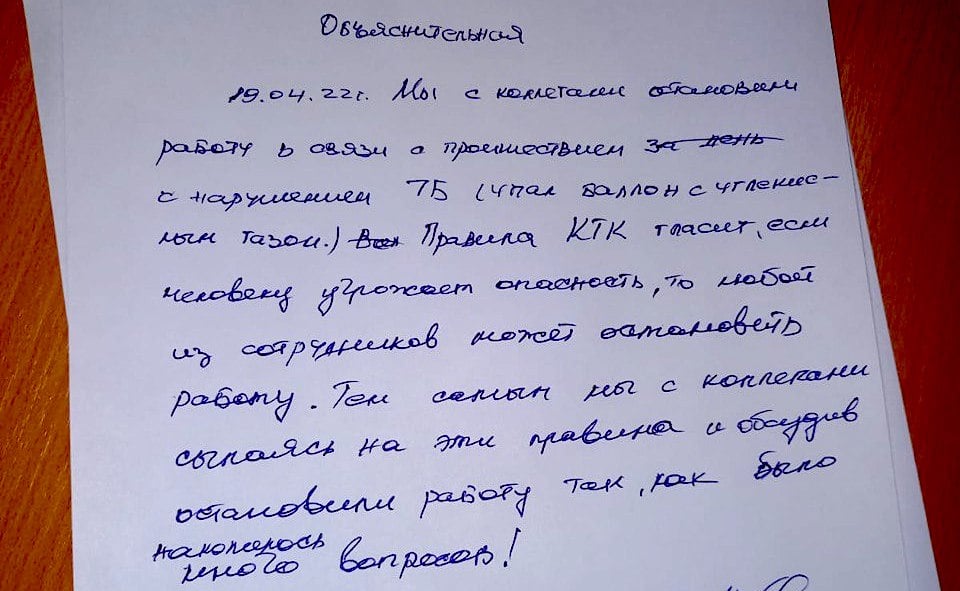 Объяснительная
19.04.22г. Мы с коллегами остановили
работу в связи с проишествием за день
с нарушением ТБ (упал баллон с углекис-
лым газом.) Вах Правила КТК гласит, если
человеку угрожает опасность, то любой
из сотрудников может остановить
работу. Тем самым мы с коллегами
сылаясь на эти правила и обсудив
остановили работу так, как было
накопилось
много вопросов!